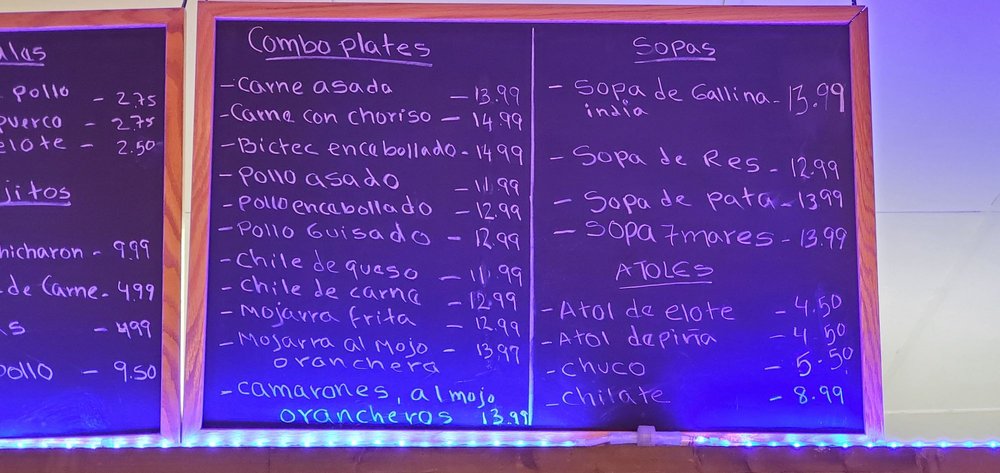 pollo - 2.75
puerco - 2.75
elote - 2.50
- 9.99
de Carne - 4.99
- 4.99
pollo - 9.50
Combo plates
- Carne asada - 13.99
- Carne con choriso - 14.99
- Bictec encabollado - 14.99
- Pollo asado - 11.99
- Pollo encabollado - 12.99
- Pollo Guisado - 12.99
- Chile de queso - 11.99
- Chile de carne - 12.99
- Mojarra frita - 12.99
- Mojarra al Mojo - 13.99
oranchera
- camarones, al mojo
orancheros 13.99
Sopas
- Sopa de Gallina - 13.99
india
- Sopa de Res - 12.99
- Sopa de pata - 13.99
- Sopa 7 mares - 13.99
ATOLES
- Atol de elote - 4.50
- Atol de piña - 4.50
- chuco - 5.50
- chilate - 8.99